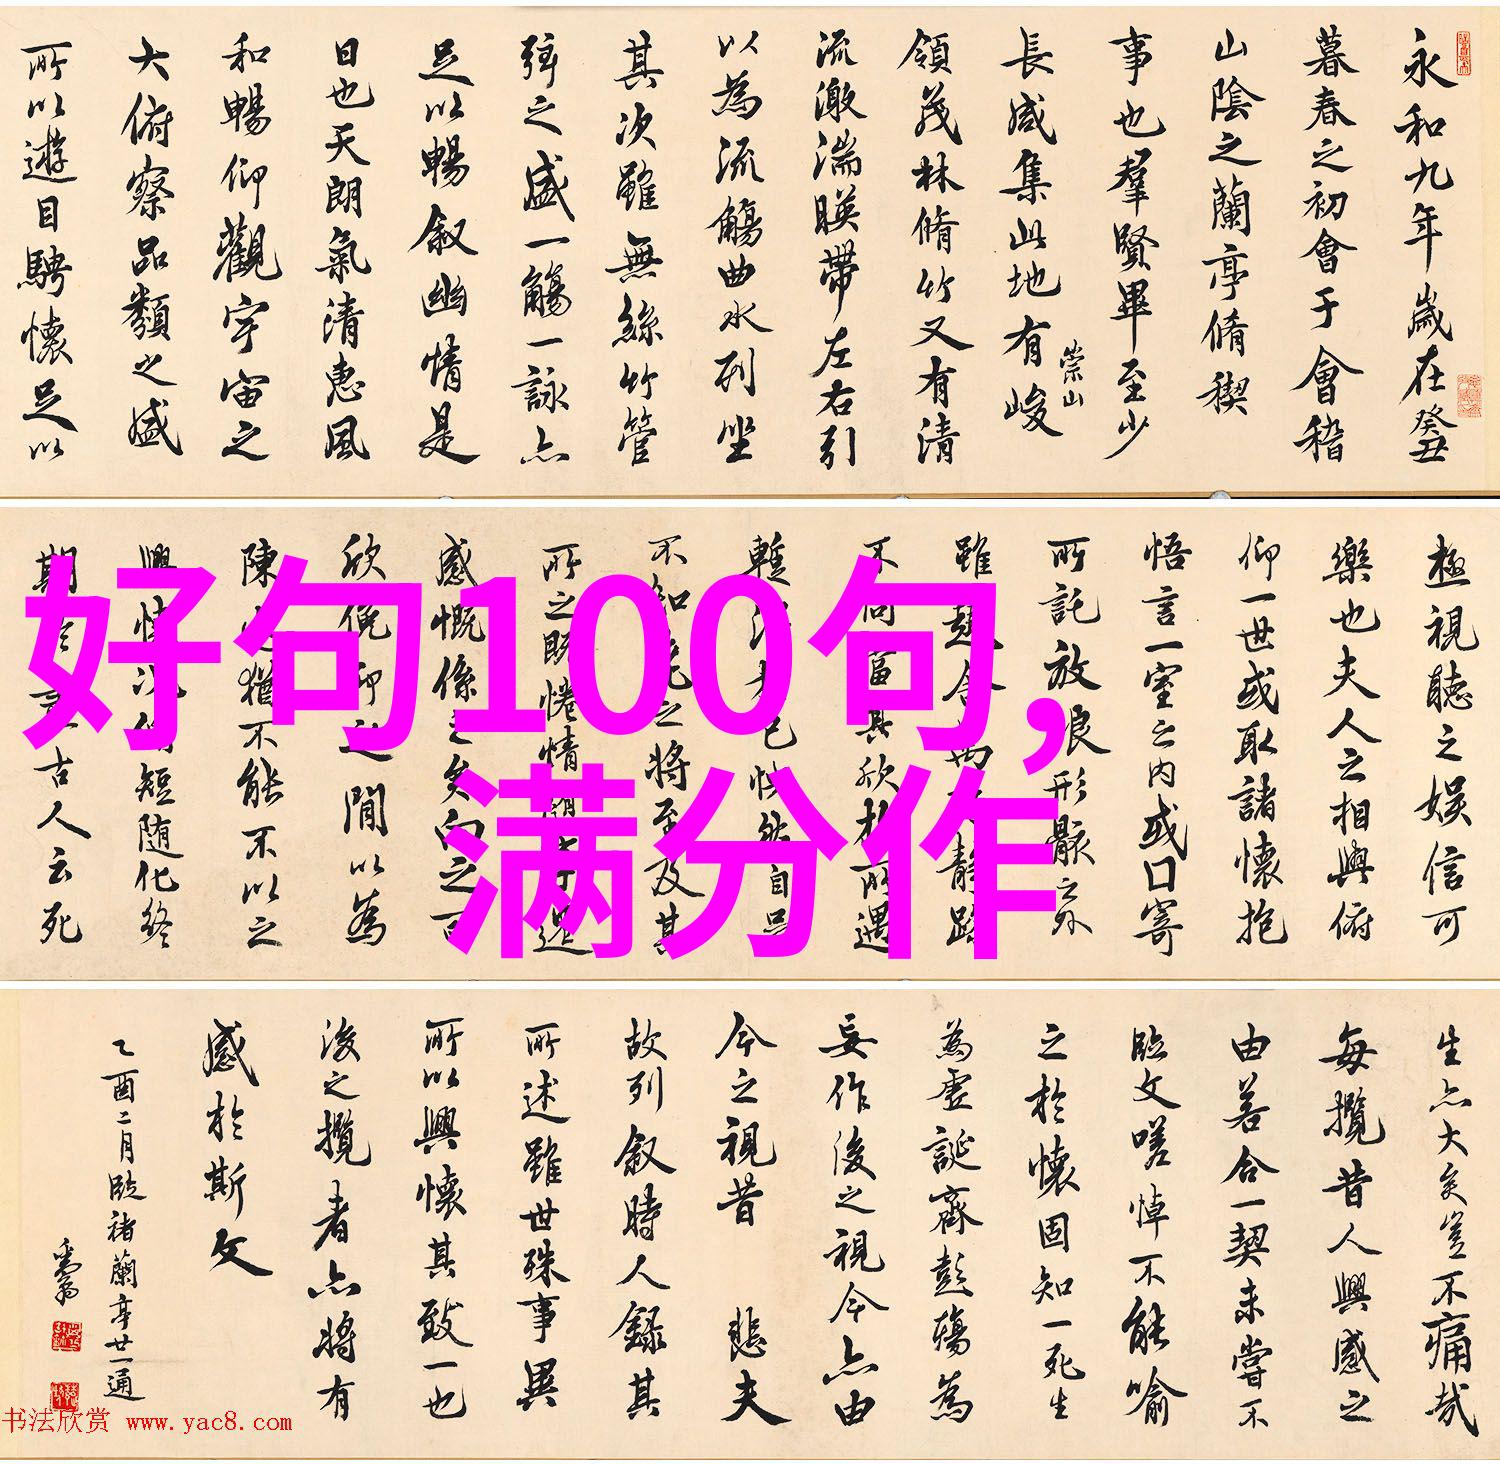 永和九年歲在癸丑
暮春之初會于會稽
山陰之蘭亭脩稧
事也羣賢畢至少
長咸集此地有峻
崇山
領茂林脩竹又有清
流激湍暎帶左右引
以為流觴曲水列坐
其次雖無絲竹管
弦之盛一觴一詠亦
足以暢叙幽情是
日也天朗氣清惠風
和暢仰觀宇宙之
大俯察品類之盛
所以遊目騁懷足以
極視聽之娛信可
樂也夫人之相與俯
仰一世或取諸懷抱
悟言一室之内或口寄
所託放浪形骸之外
雖趣舍萬 靜躁
不同當其欣於所遇
暫 己快然自足
不知老之將至及其
所之既惓情隨事遷
感慨係之矣向之
欣俛仰之閒以為
陳 猶不能不以之
興懷況脩短随化終
期 古人云死
生亦大矣豈不痛哉
每攬昔人興感之
由若合一契未嘗不
臨文嗟悼不能喻
之於懷固知一死生
為虛誕齊彭殤為
妄作後之視今亦由
今之視昔 悲夫
故列叙時人錄其
所述雖世殊事異
所以興懷其致一也
後之攬者亦將有
感於斯文
乙酉二月臨褚蘭亭廿一通
好句100句,
满分作
书法欣赏 www.yac8.com